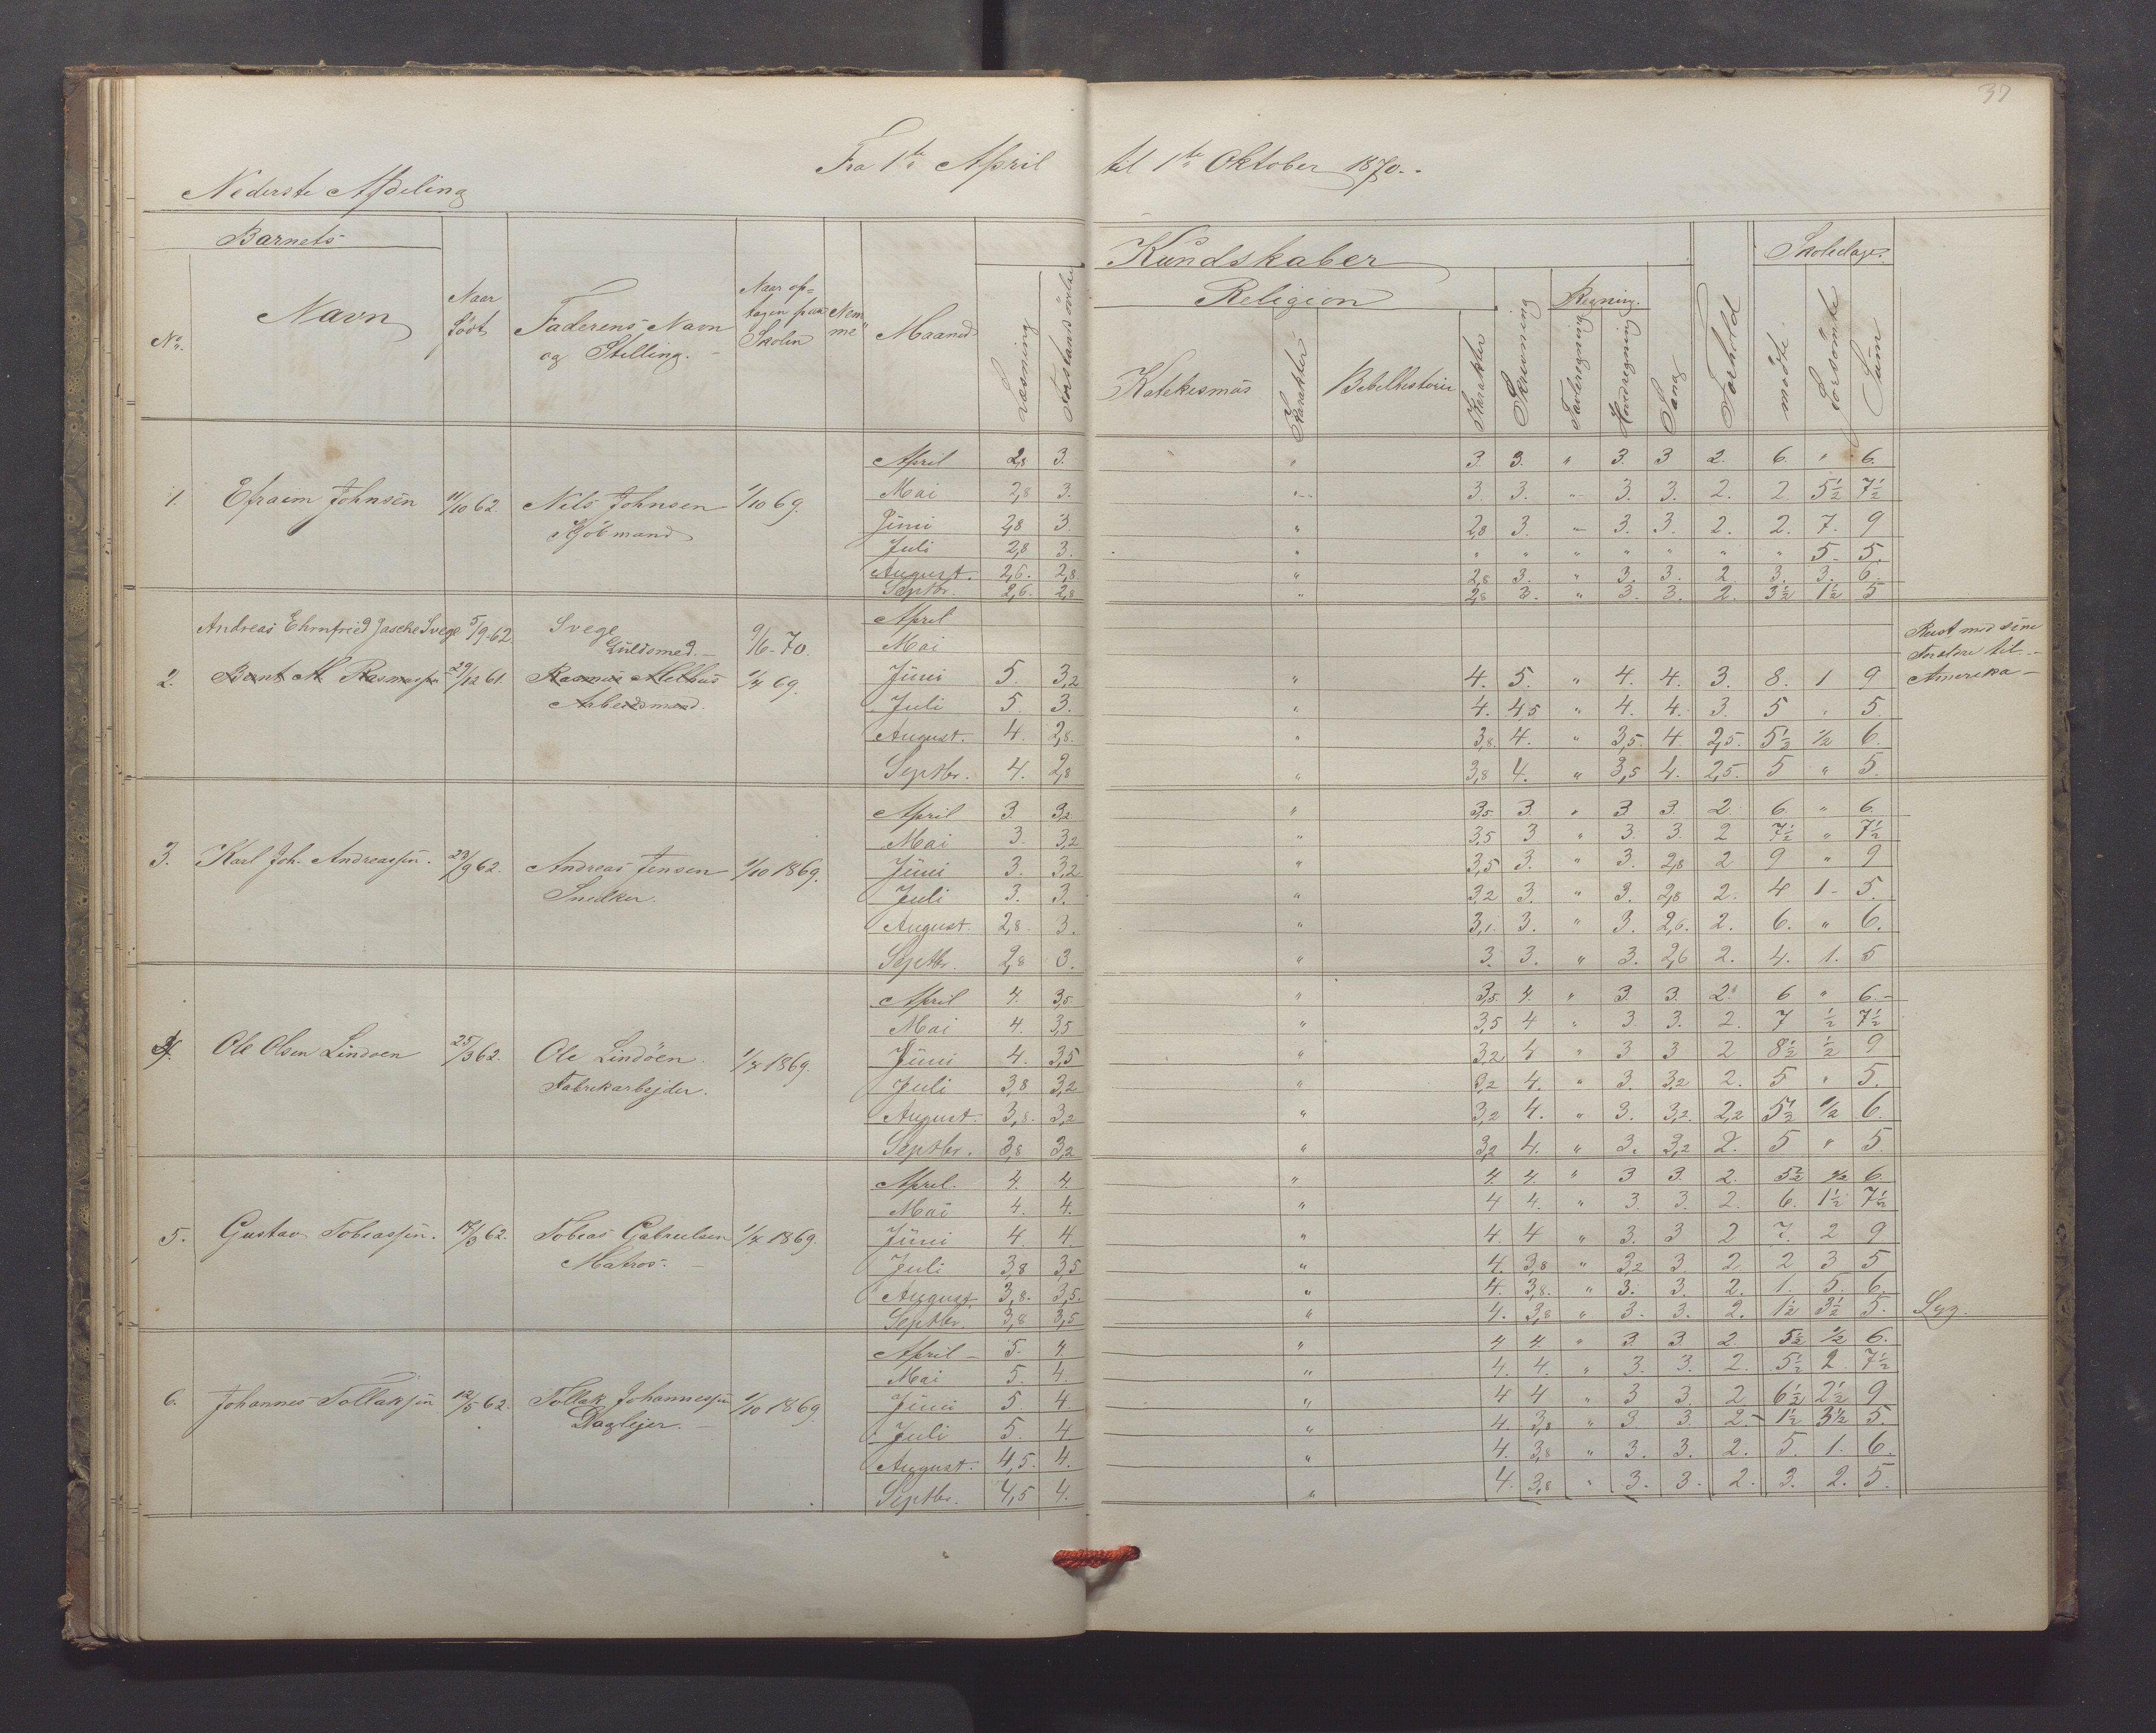 37
Fra 1ste April til 1ste Oktober 1870.
Nederste Afdeling
Barnets Kundskaber Skoledage
Religion Regning
No. Navn Naar Födt Faderens Navn og Stilling. Naar optagen paa Skolen Nemme Maaned Læsning Forstandsövelse Katekismus Karakter Bibelhistorie Karakter Skrivning Tavleregning Hovedregning Sang Forhold mödte Forsömte Sum
April 2,8 3. " 3. 3. " 3. 3 2. 6. " 6.
1. Efraim Johnsen 11/10 62. Nils Johnsen 1/10 69. Mai 2,8 3. " 3. 3. " 3. 3. 2. 2. 5½ 7½
Kjöbmand Juni 2,8 3. " 2,8 3. " 3. 3. 2. 2. 7. 9
Juli 2,8 3. " " " " " " " " 5. 5.
August. 2,6. 2,8. " 2,8 3. " 3. 3. 2. 3. 3. 6.
Septbr. 2,6. 2,8 " 2,8 3. " 3. 3. 2. 3½ 1½ 5
Andreas Ehrnfried Jasche Svege 5/9-62. Svege 9/6-70. April
Guldsmed. Mai Reist med sine Forældre til Amerika
2. Bernt M Rasmussen 29/12 61. Rasmus Melhus 1/4 69. Juni 5. 3,2 " 4. 5. " 4. 4. 3. 8. 1 9
Arbeidsmand. Juli 5. 3. " 4. 4,5 " 4. 4. 3. 5 " 5.
August. 4. 2,8. " 3,8. 4. " 3,5. 4. 2,5. 5½ ½ 6.
Septbr. 4. 2,8 " 3,8 4. " 3,5 4. 2,5. 5 " 5.
April 3. 3,2. " 3,5. 3. " 3 3. 2. 6. " 6.
Mai 3. 3,2 " 3,5 3 " 3. 3. 2 7½ " 7½
3. Karl Joh. Andreassen. 23/9 62. Andreas Jensen 1/10 1869. Juni 3. 3,2 " 3,5 3. " 3. 2,8 2 9 " 9
Snedker. Juli 3. 3. " 3,2 3. " 3. 2,8 2. 4 1 5.
August. 2,8. 3. " 3,1. 3. " 3. 2,6. 2. 6. " 6.
Septbr. 2,8 3. " 3. 3. " 3. 2,6 2. 4. 1. 5
April 4. 3,5. " 3,5. 4. " 3. 3. 2. 6 " 6.
Mai 4. 3,5 " 3,5 4 " 3. 3. 2. 7 ½ 7½
4. Ole Olsen Lindöen 25/3 62. Ole Lindöen. 1/4 1869. Juni 4. 3,5 " 3,2 4 " 3 3 2 8½ ½ 9
Fabrikarbejder. Juli 3,8 3,2 " 3,2 4. " 3. 3,2 2. 5 " 5.
August. 3,8. 3,2 " 3,2 4. " 3. 3,2. 2,2 5½ ½ 6.
Septbr. 3,8 3,2 " 3,2 4. " 3. 3,2 2. 5 " 5.
April. 4. 4. " 4. 4. " 3 3. 2. 5½ ½ 6.
Mai 4. 4. " 4 4. " 3. 3. 2. 6. 1½ 7½
5. Gustav Tobiassen. 62. Tobias Gabrielsen 1/4 1869. Juni 4. 4. " 4. 4 " 3. 3 2 7. 2 9
Matros. Juli 3,8 3,5 " 4. 3,8 " 3,2 3. 2. 2 3 5
August 3,8. 3,5. " 4. 3,8. " 3. 3. 2. 1. 5. 6.
Septbr. 3,8 3,5 " 4. 3,8 " 3. 3. 2. 1½ 3½ 5. Syg.
April 5. 4. " 4 4. " 3. 3 2. 5½ ½ 6.
Mai 5. 4. " 4. 4. " 3. 3. 2. 5½ 2. 7½
6. Johannes Tollaksen 12/5 62. Tollak Johannessen 1/10 1869. Juni 5 4. " 4 4 " 3 3. 2. 6½ 2½ 9
Daglejer. Juli 5. 4. " 4. 3,8 " 3. 3. 2. 1½ 3½ 5.
August. 4,5. 4. " 4. 3,8 " 3. 3. 2. 5. 1. 6.
Septbr. 4,5 4. " 4. 3,8 " 3. 3. 2. 3. 2. 5.